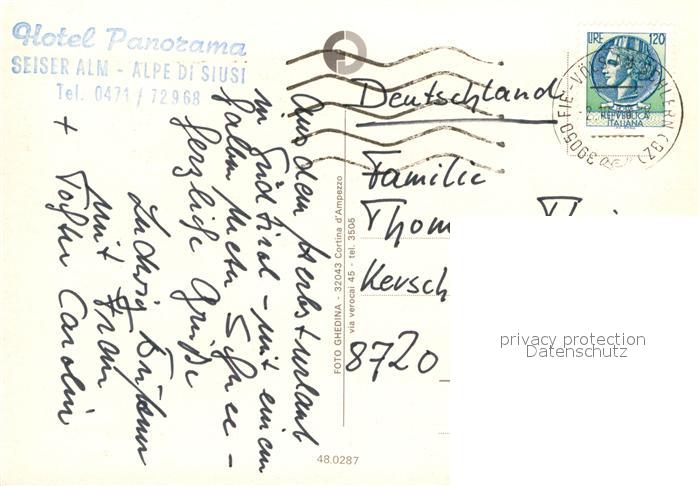 Hotel Panorama
SEISER ALM - ALPE DI SIUSI
Tel. 0471/72968
Aus dem Herbsturlaub
in Südtirol - mit einem
halben Meter Schnee -
herzliche Grüße
Ludwig
mit Frau
+ Tochter Carolin
FOTO GHEDINA - 32043 Cortina d'Ampezzo
via verocai 45 - tel. 3505
48.0287
LIRE 120
REPUBBLICA
ITALIANA
39050 FIE-VÖLS
(BZ)
Deutschland
Familie
Thom
Kersch
8720
privacy protection
Datenschutz